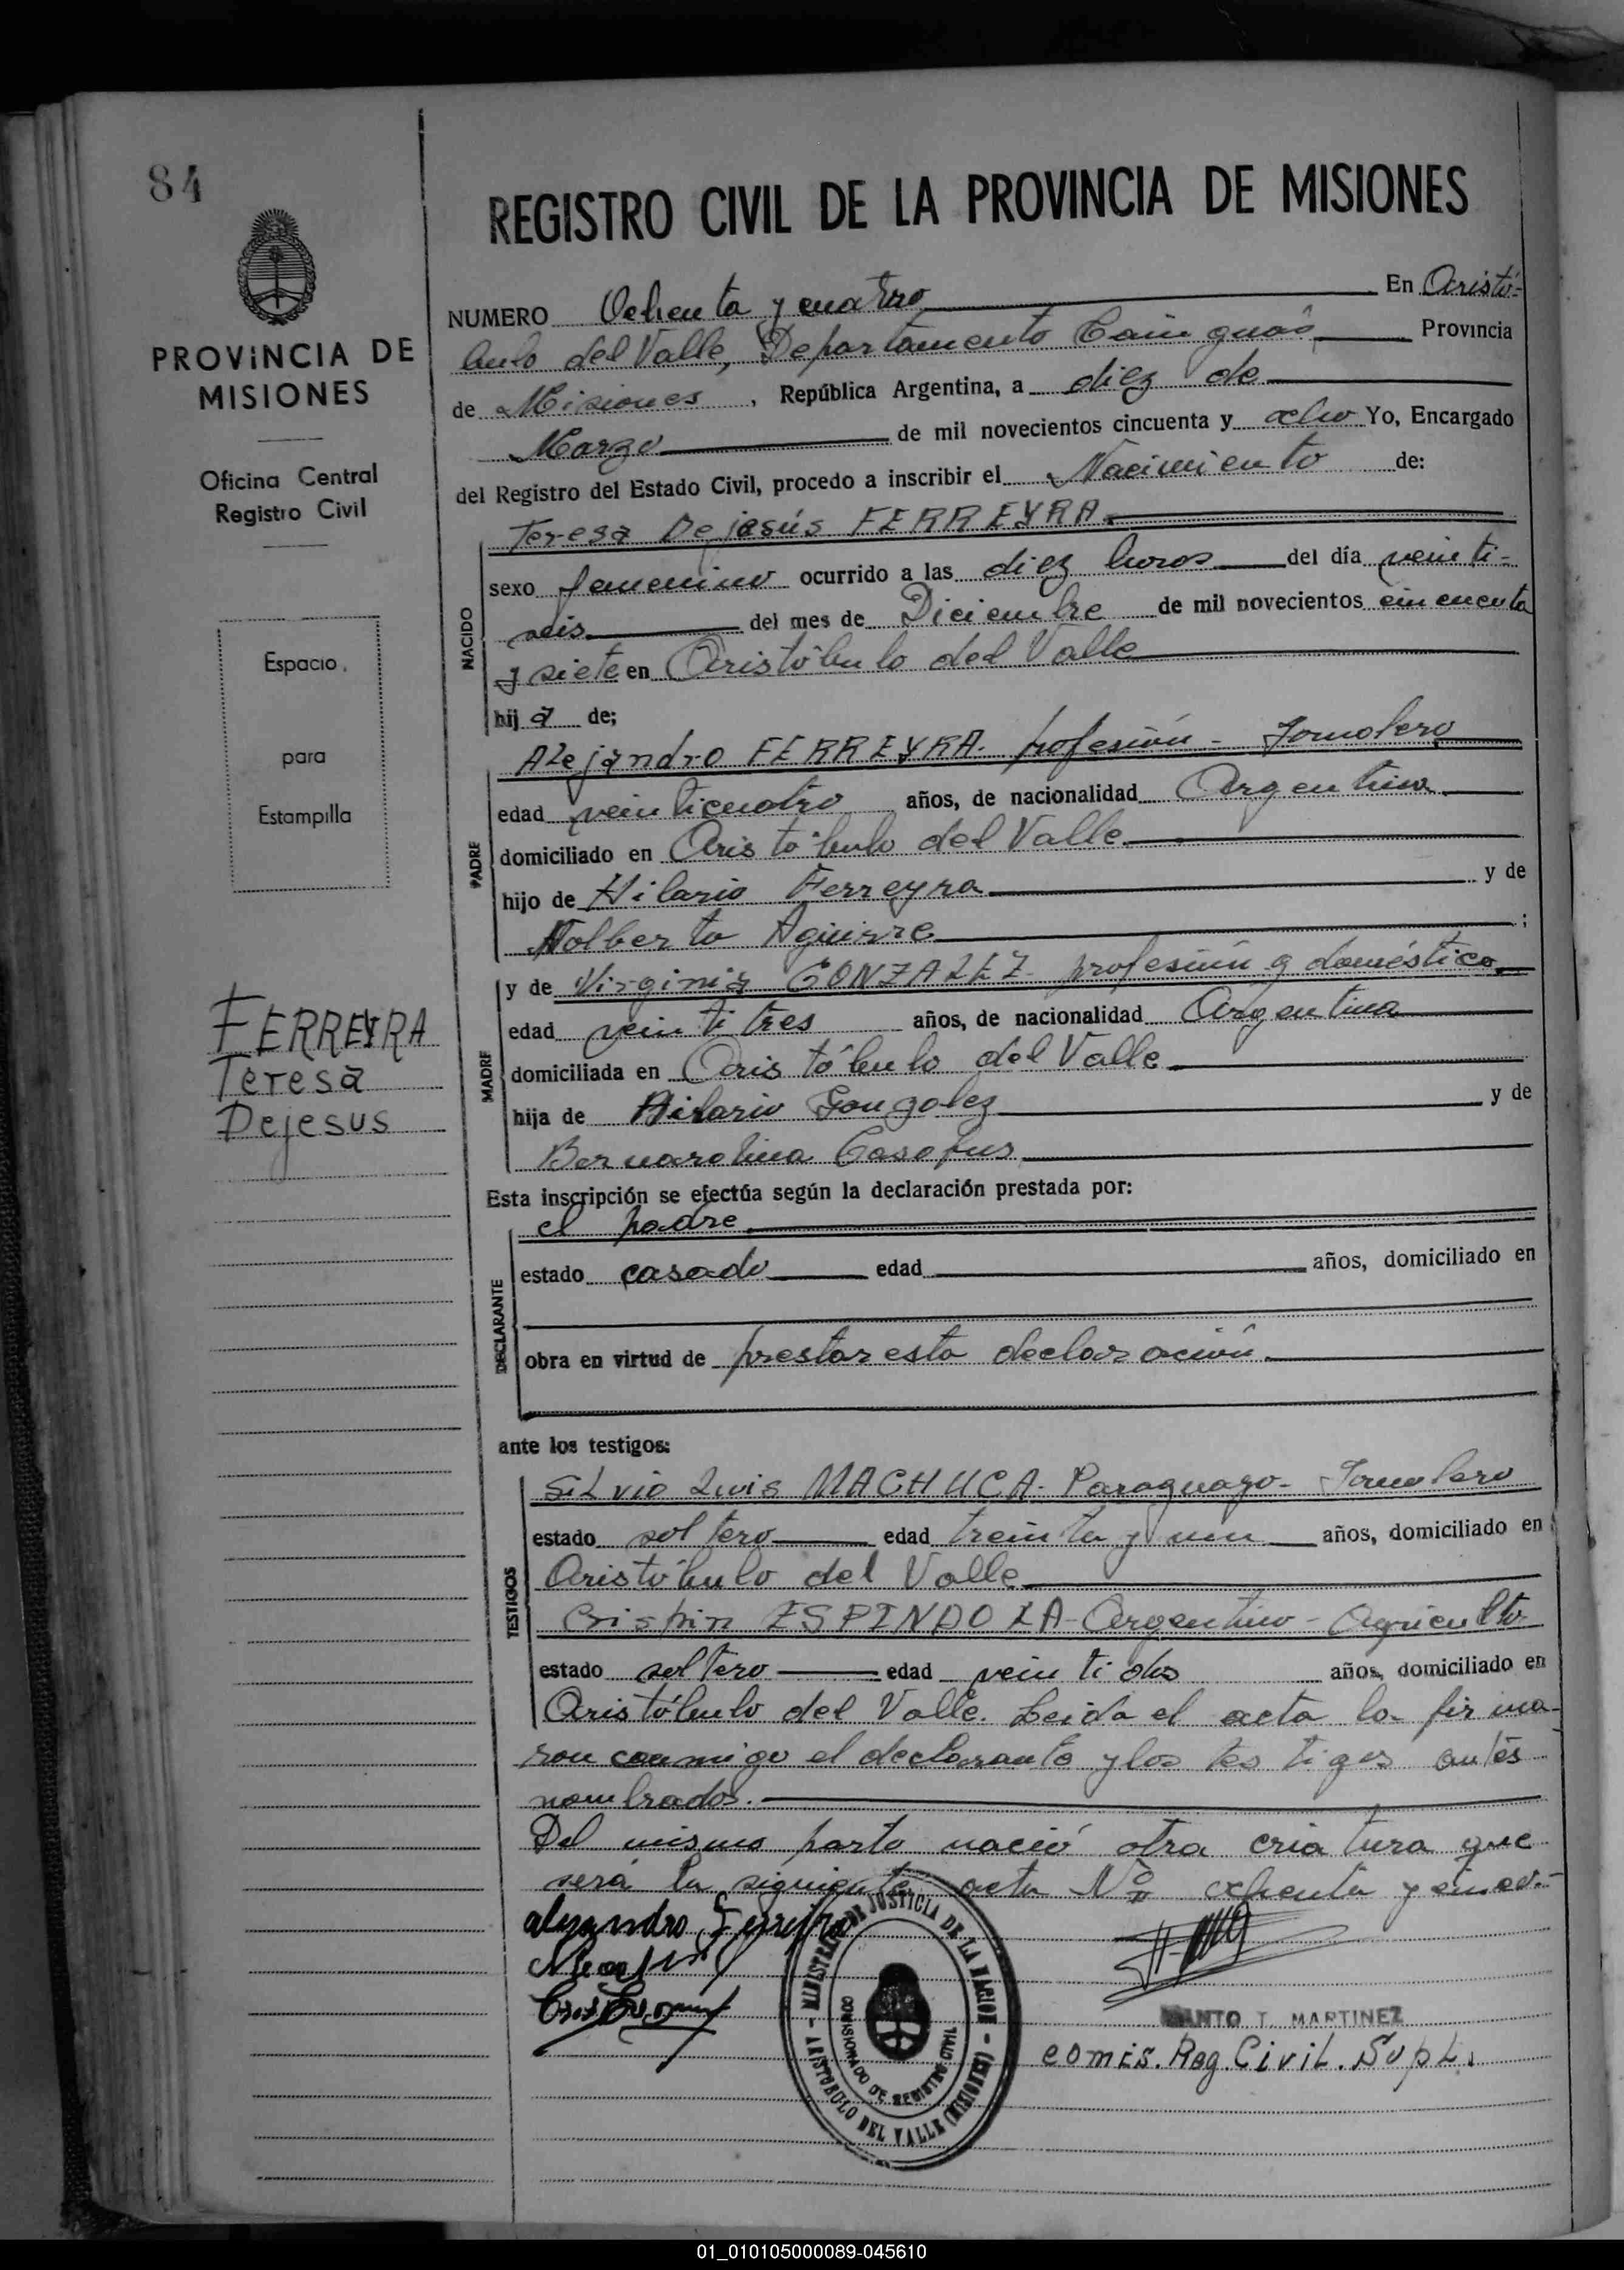 84
PROVINCIA DE
MISIONES
Oficina Central
Registro Civil
Espacio
para
Estampilla
FERREYRA
Teresa
Dejesus
REGISTRO CIVIL DE LA PROVINCIA DE MISIONES
NUMERO Ochenta y cuatro En Aristó-
bulo del Valle, Departamento Cainguás Provincia
de Misiones, República Argentina, a diez de
Marzo de mil novecientos cincuenta y ocho Yo, Encargado
del Registro del Estado Civil, procedo a inscribir el Nacimiento de:
NACIDO
Teresa Dejesús FERREYRA
sexo femenino ocurrido a las diez horas del día veinti-
seis del mes de Diciembre de mil novecientos cincuenta
y siete en Aristóbulo del Valle
hija de;
PADRE
Alejandro FERREYRA. profesión - Jornalero
edad veinticuatro años, de nacionalidad Argentina
domiciliado en Aristóbulo del Valle
hijo de Hilario Ferreyra y de
Nolberta Aguirre ;
MADRE
y de Virginia GONZALEZ profesión q doméstico
edad veintitres años, de nacionalidad Argentina
domiciliada en Aristóbulo del Valle
hija de Hilario Gonzalez y de
Bernardina
Esta inscripción se efectúa según la declaración prestada por:
DECLARANTE
el padre
estado casado edad años, domiciliado en
obra en virtud de prestar esta declaración
ante los testigos:
TESTIGOS
Silvio Luis MACHUCA. Paraguayo - Jornalero
estado soltero edad treinta y un años, domiciliado en
Aristóbulo del Valle
Crispin ESPINDOLA - Argentino - Agriculto
estado soltero edad veintidos años, domiciliado en
Aristóbulo del Valle. Leida el acta la firma-
ron conmigo el declarante y los testigos antes
nombrados.
Del mismo parto nació otra criatura que
será la siguiente acta Nº ochenta y cinco.-
alejandro Ferreira
MINISTERIO DE JUSTICIA DE LA NACION
COMISIONADO DE REGISTRO CIVIL
ARISTOBULO DEL VALLE (MISIONES)
T. MARTINEZ
comis. Reg. Civil. Supl.
01_010105000089-045610